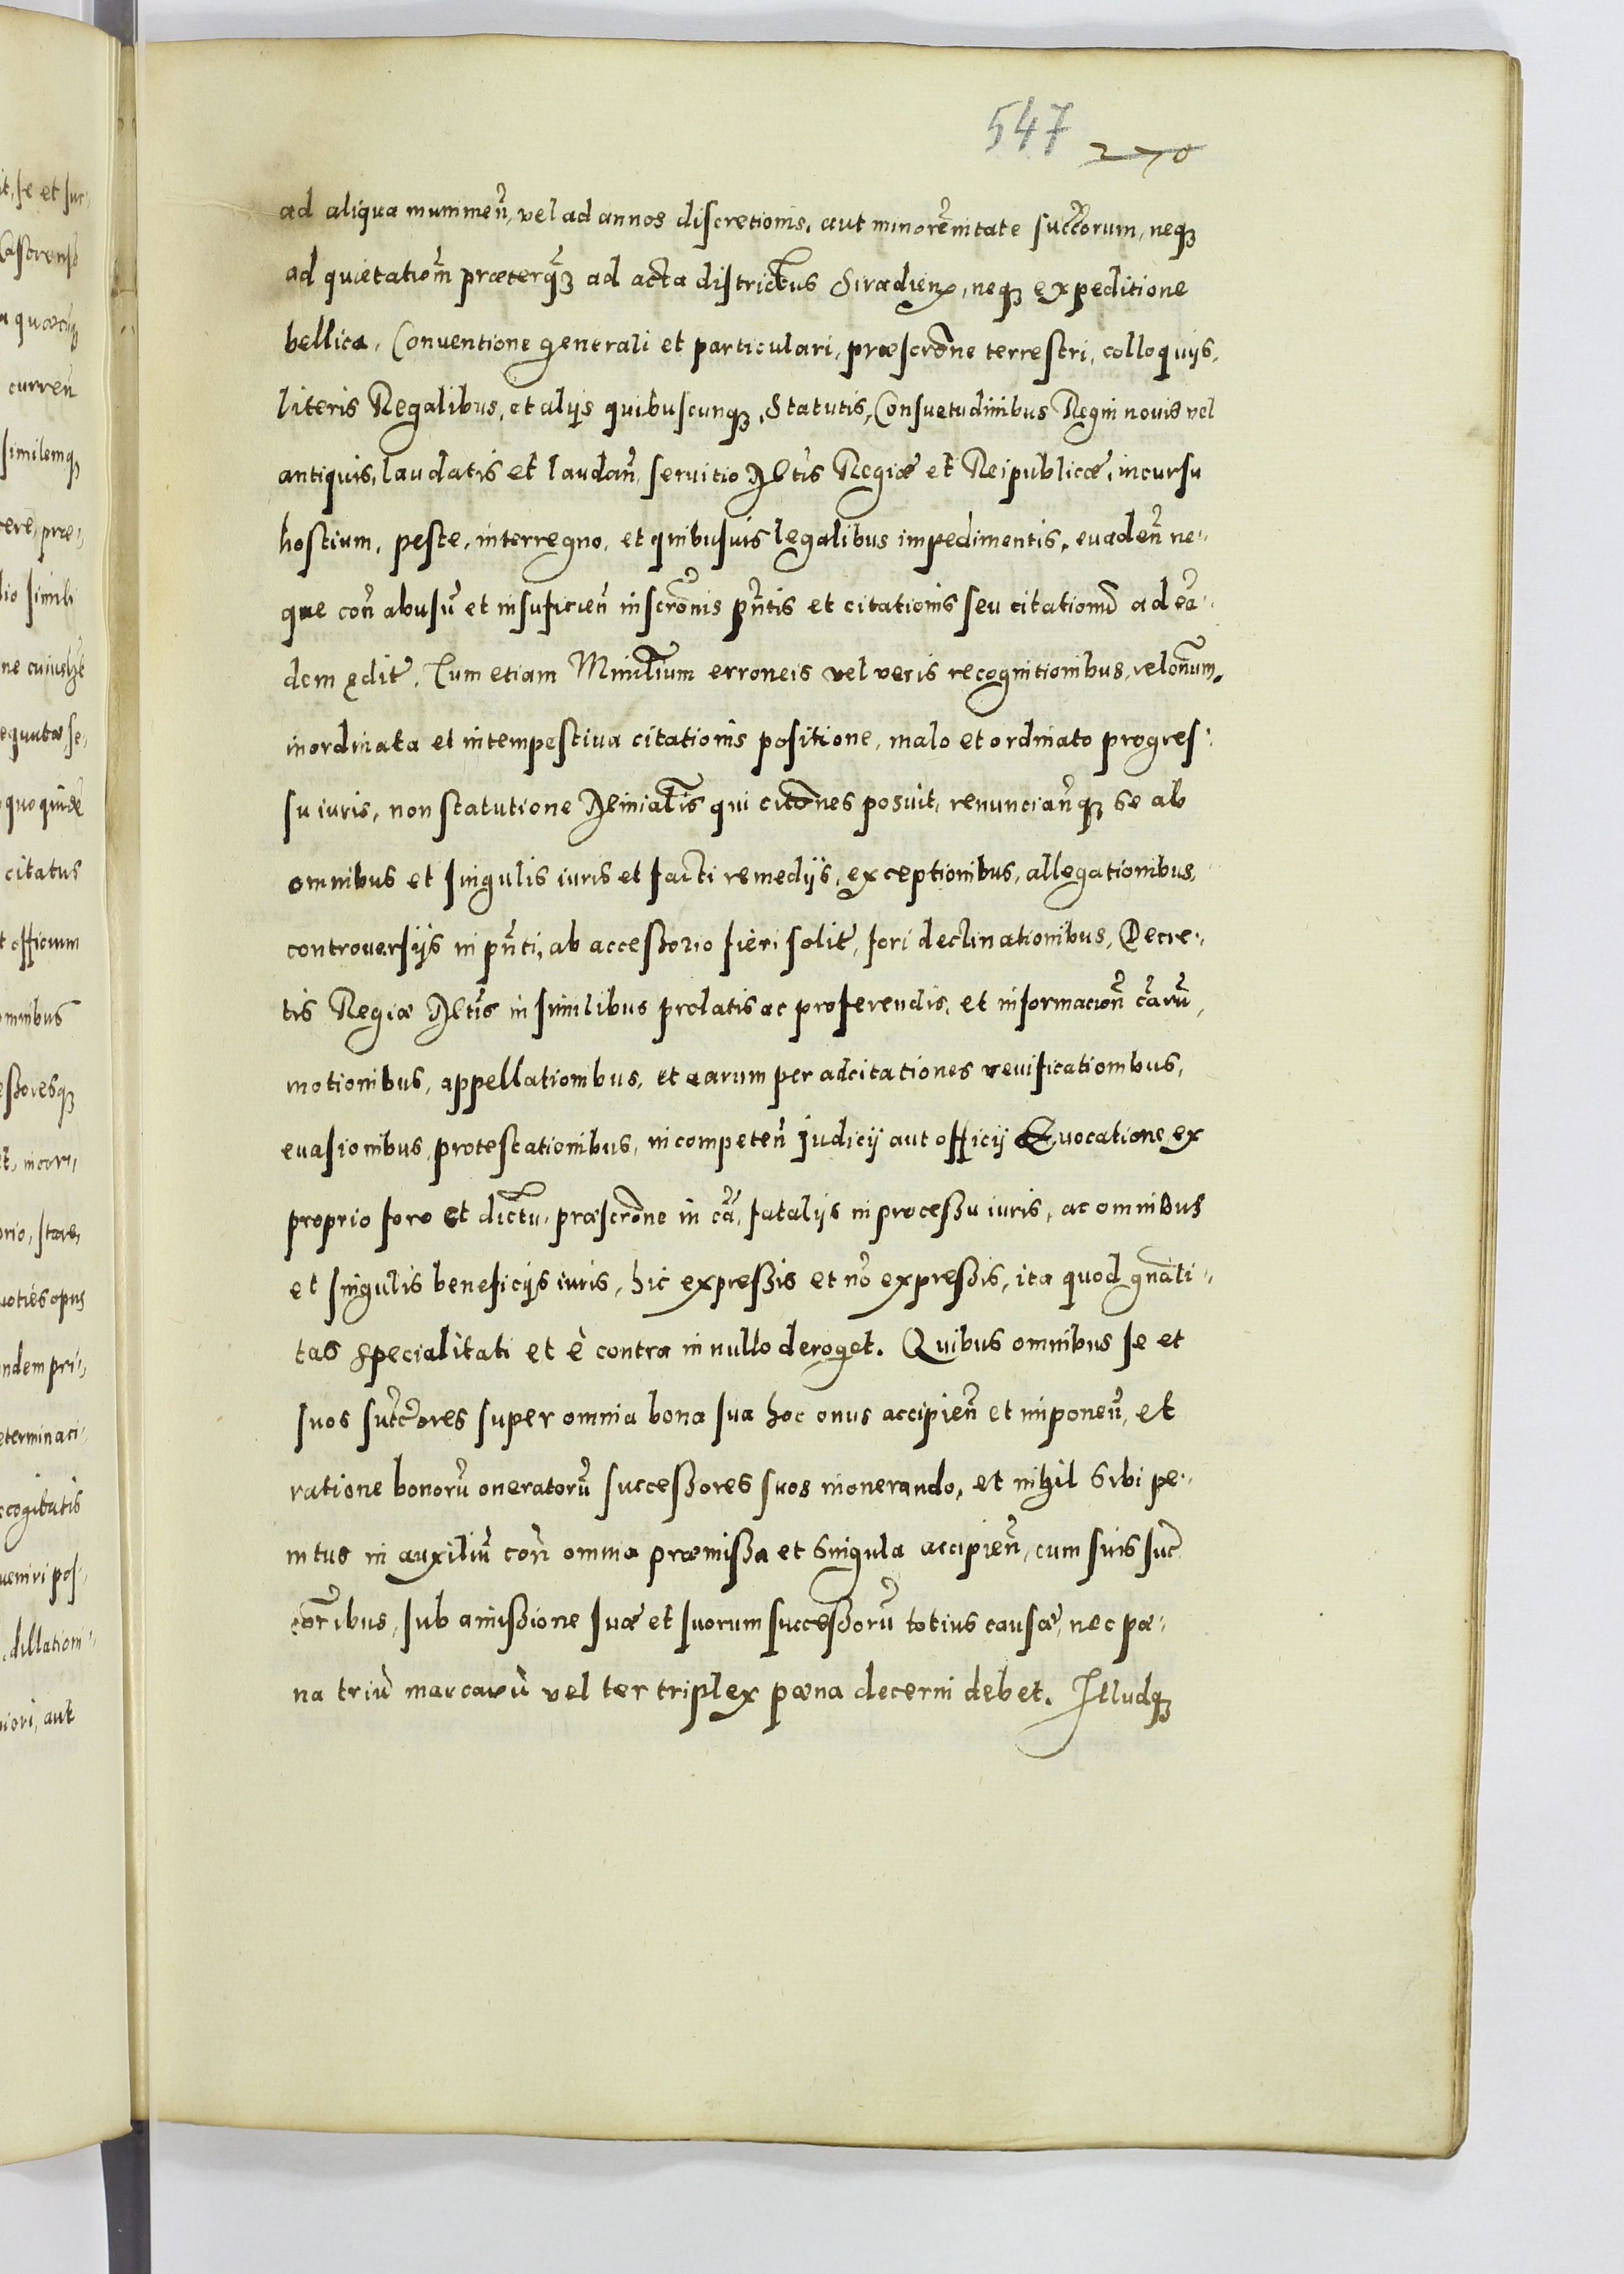 547 270
ad aliqua munimen̄, vel ad annos discretionis, aut minorēnitate succ̄orum, neqꝫ
ad quietatiōm præterq̄ꝫ ad acta districtus Siradien̄, neqꝫ expeditione
bellica, Conventione generali et particulari, præscr̄one terrestri, colloquijs,
literis Regalibus, et alijs quibuscunqꝫ, Statutis, Consuetudinibus Regni novis vel
antiquis, laudatis et laudan̄, servitio Mt̄is Regiæ et Reipublicæ, incursu
hostium, peste, interregno, et quibusuis legalibus impedimentis, euaden̄ ne-
que con̄ abusū et insuficien̄ inscr̄onis pn̄tis et citationis seu citationū ad eā-
dem ędit̄. Tum etiam Minīlium erroneis vel veris recognitionibus, relōnum,
inordinata et intempestiua citationis positione, malo et ordinato progres-
su iuris, non statutione Miniālis qui citōnes posuit, renuncianqꝫ se ab
omnibus et singulis iuris et facti remedijs, exceptionibus, allegationibus,
controuersijs in pn̄ti, ab accessorio fieri solit̄, fori declinationibus, Decre-
tis Regiæ Mt̄is in similibus prolatis ac proferendis, et informacion̄ cārū,
motionibus, appellationibus, et earum per adcitationes reuificationibus,
euasionibus, protestationibus, incompeten̄ Iudicij aut officij Euocatione ex
proprio foro et dictu, præscr̄one in cā, fatalijs in processu iuris, ac omnibus
et singulis beneficijs iuris, hic expressis et nō expressis, ita quod gnāli-
tas specialitati et è contra in nullo deroget. Quibus omnibus se et
suos succ̄ores super omnia bona sua hoc onus accipien̄ et imponen̄, et
ratione bonorū oneratorū successores suos inonerando, et nihil sibi pe-
nitus in auxiliū con̄ omnia præmissa et singula accipien̄, cum suis suc̄
corībus, sub amissione suæ et suorum successorū totius causæ, nec pæ-
na triū marcarū vel ter triplex pœna decerni debet. Illudqꝫ